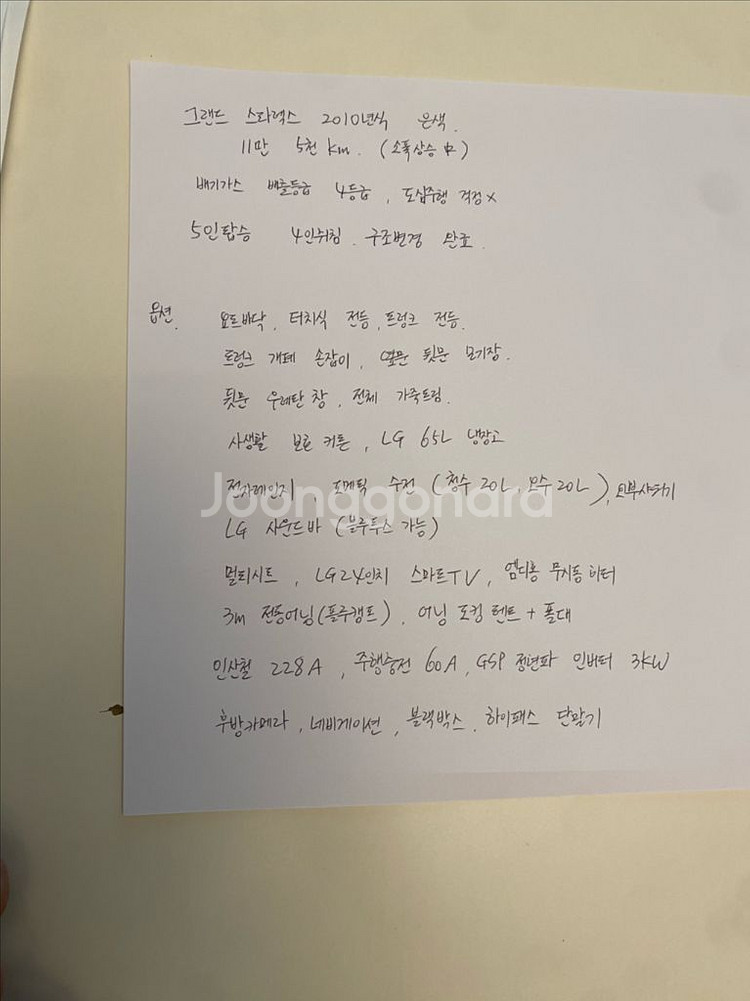 그랜드 스타렉스 2010년식 은색.
11만 5천 km. (소폭상승 中)
배기가스 배출등급 4등급, 도심주행 걱정x
5인탑승 4인취침. 구조변경 완료.
옵션. 요트바닥, 터치식 전등, 트렁크 전등.
트렁크 개폐 손잡이, 옆문 뒷문 모기장.
뒷문 우레탄 창, 전체 가죽트림.
사생활 보호 커튼, LG 65L 냉장고
전자레인지, 도메틱 수전 (청수 20L, 오수 20L), 외부샤워기
Joonggonara
LG 사운드바 (블루투스 가능)
멀티시트, LG24인치 스마트TV, 엠디홍 무시동 히터
3m 전동어닝(블루캠프), 어닝 도킹 텐트 + 폴대
인산철 228A, 주행충전 60A, GSP 정현파 인버터 3KW
후방카메라, 네비게이션, 블랙박스. 하이패스 단말기